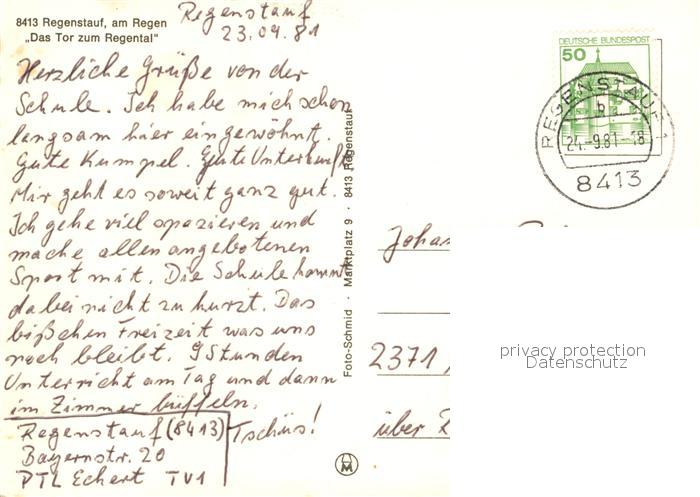 8413 Regenstauf, am Regen
„Das Tor zum Regental"
Regenstauf
23.09.81
Herzliche Grüße von der
Schule. Ich habe mich schon
langsam hier eingewöhnt.
Gute Kumpel. Gute Unterkunft.
Mir geht es soweit ganz gut.
Ich gehe viel spazieren und
mache allen angebotenen
Sport mit. Die Schule kommt
dabei nicht zu kurzt. Das
bißchen Freizeit was uns
noch bleibt. 9 Stunden
Unterricht am Tag und dann
im Zimmer büffeln.
Tschüs!
Regenstauf (8413)
Bayernstr. 20
PTL Eckert TV1
Foto-Schmid · Marktplatz 9 · 8413 Regenstauf
DEUTSCHE BUNDESPOST
50
REGENSTAUF 1
b
24.-9.81-18
8413
2371
über
privacy protection
Datenschutz